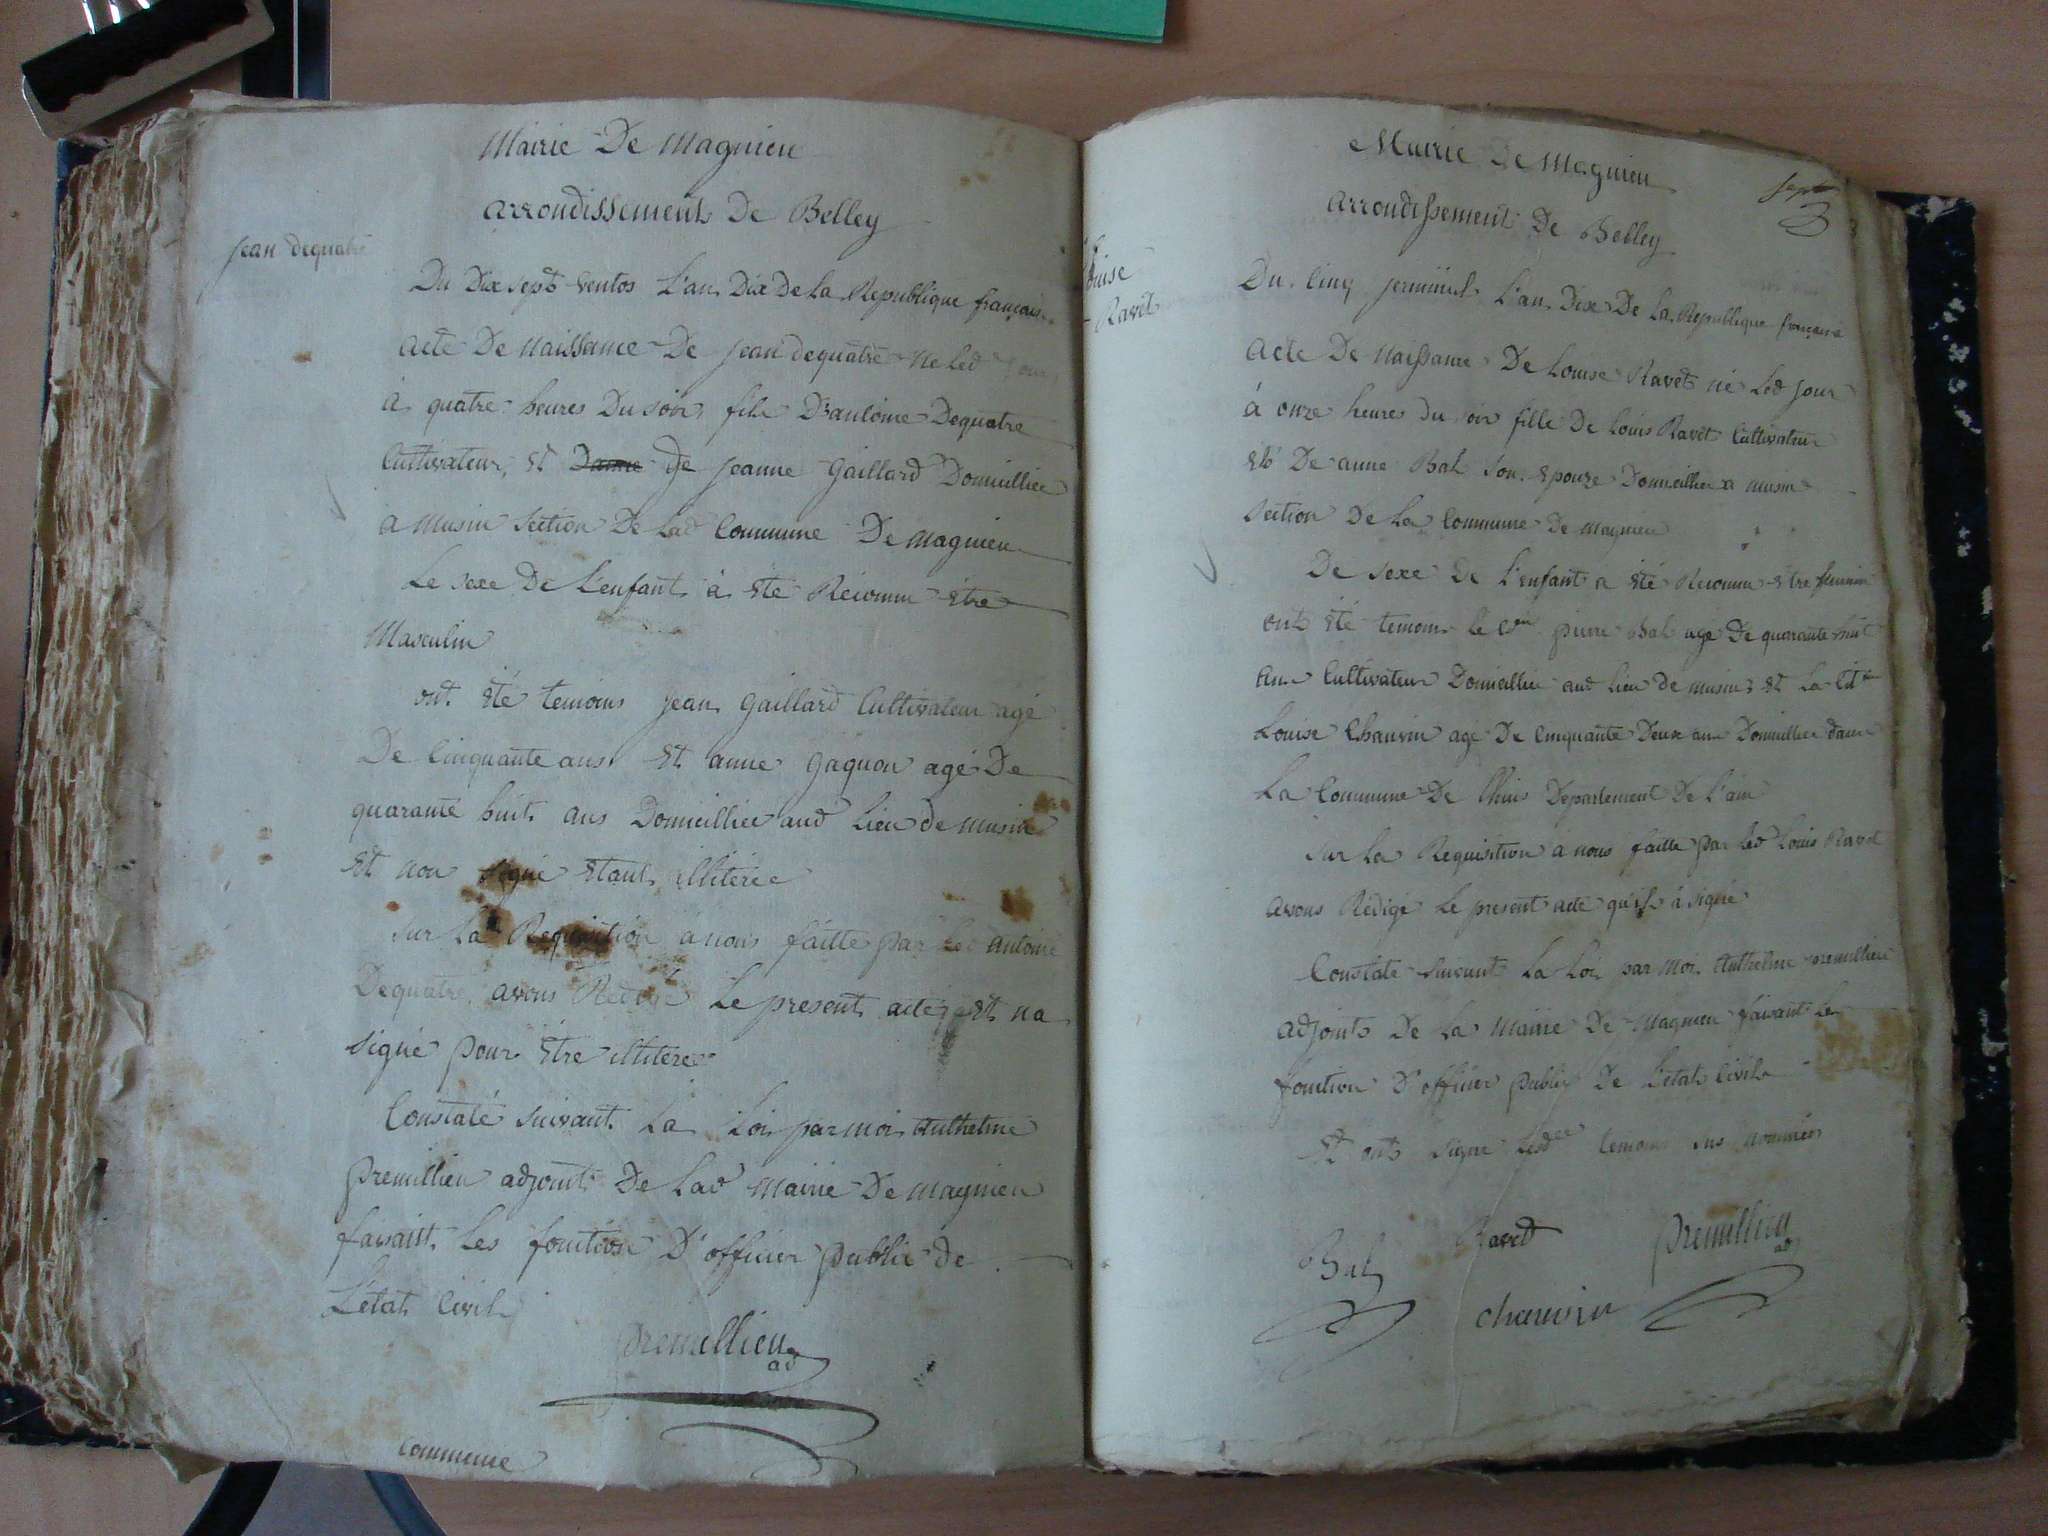 Mairie De Magnieu
arrondissement De Belley
jean dequatre
Du Dix sept ventos L'an Dix De La Republique francois
acte De naissance De jean dequatre ne led jour
à quatre heures Du soir, fils D'antoine Dequatre
Cultivateur, et De jeanne gaillard Domicilliee
a Musin section De Lad Commune De magnieu
Le sexe De L'enfant à été Reconnu être
Masculin
ont été temoins jean gaillard Cultivateur agé
De Cinquante ans et anne gagnon agé De
quarante huit ans Domicilliee aud Lieu de musin
et non signé étant illiterée
sur La Requisition a nous faitte par led antoine
Dequatre avons Redigé Le present acte et na
signé pour être illitere
Constaté suivant La Loi par moi Anthelme
premillieu adjoint De Lad mairie De magnieu
faisant Les fonction D'officier public de
L'état Civil
premillieu
ad
commune
Mairie De Magnieu
arrondissement De Belley
sept
Louise
Ravet
Du Cinq jerminal L'an Dix De La Republique française
acte De naissance De Louise Ravet né led jour
à onze heures du soir fille De Louis Ravet Cultivateur
et De anne Bal son epouze Domicillier a musin
section De La Commune De magnieu
De sexe De L'enfant a été Reconnu être feminin
ont été temoins le pierre Bal agé De quarante huit
ans Cultivateur Domicillié aud Lieu de musin et La
Louise Chauvin agé De Cinquante Deux ans Domicillier dans
La Commune De Departement De L'ain
sur La Requisition a nous faitte par led Louis Ravet
avons Rédigé Le present acte qu'il à signé
Constaté suivant La Loi par moi Anthelme premillieu
adjoint De La mairie De Magnieu faisant Les
fonction D'officier public De L'etat Civil
Et ont signé temoins sus nommés
Bal Ravet premillieu
ad
chauvin